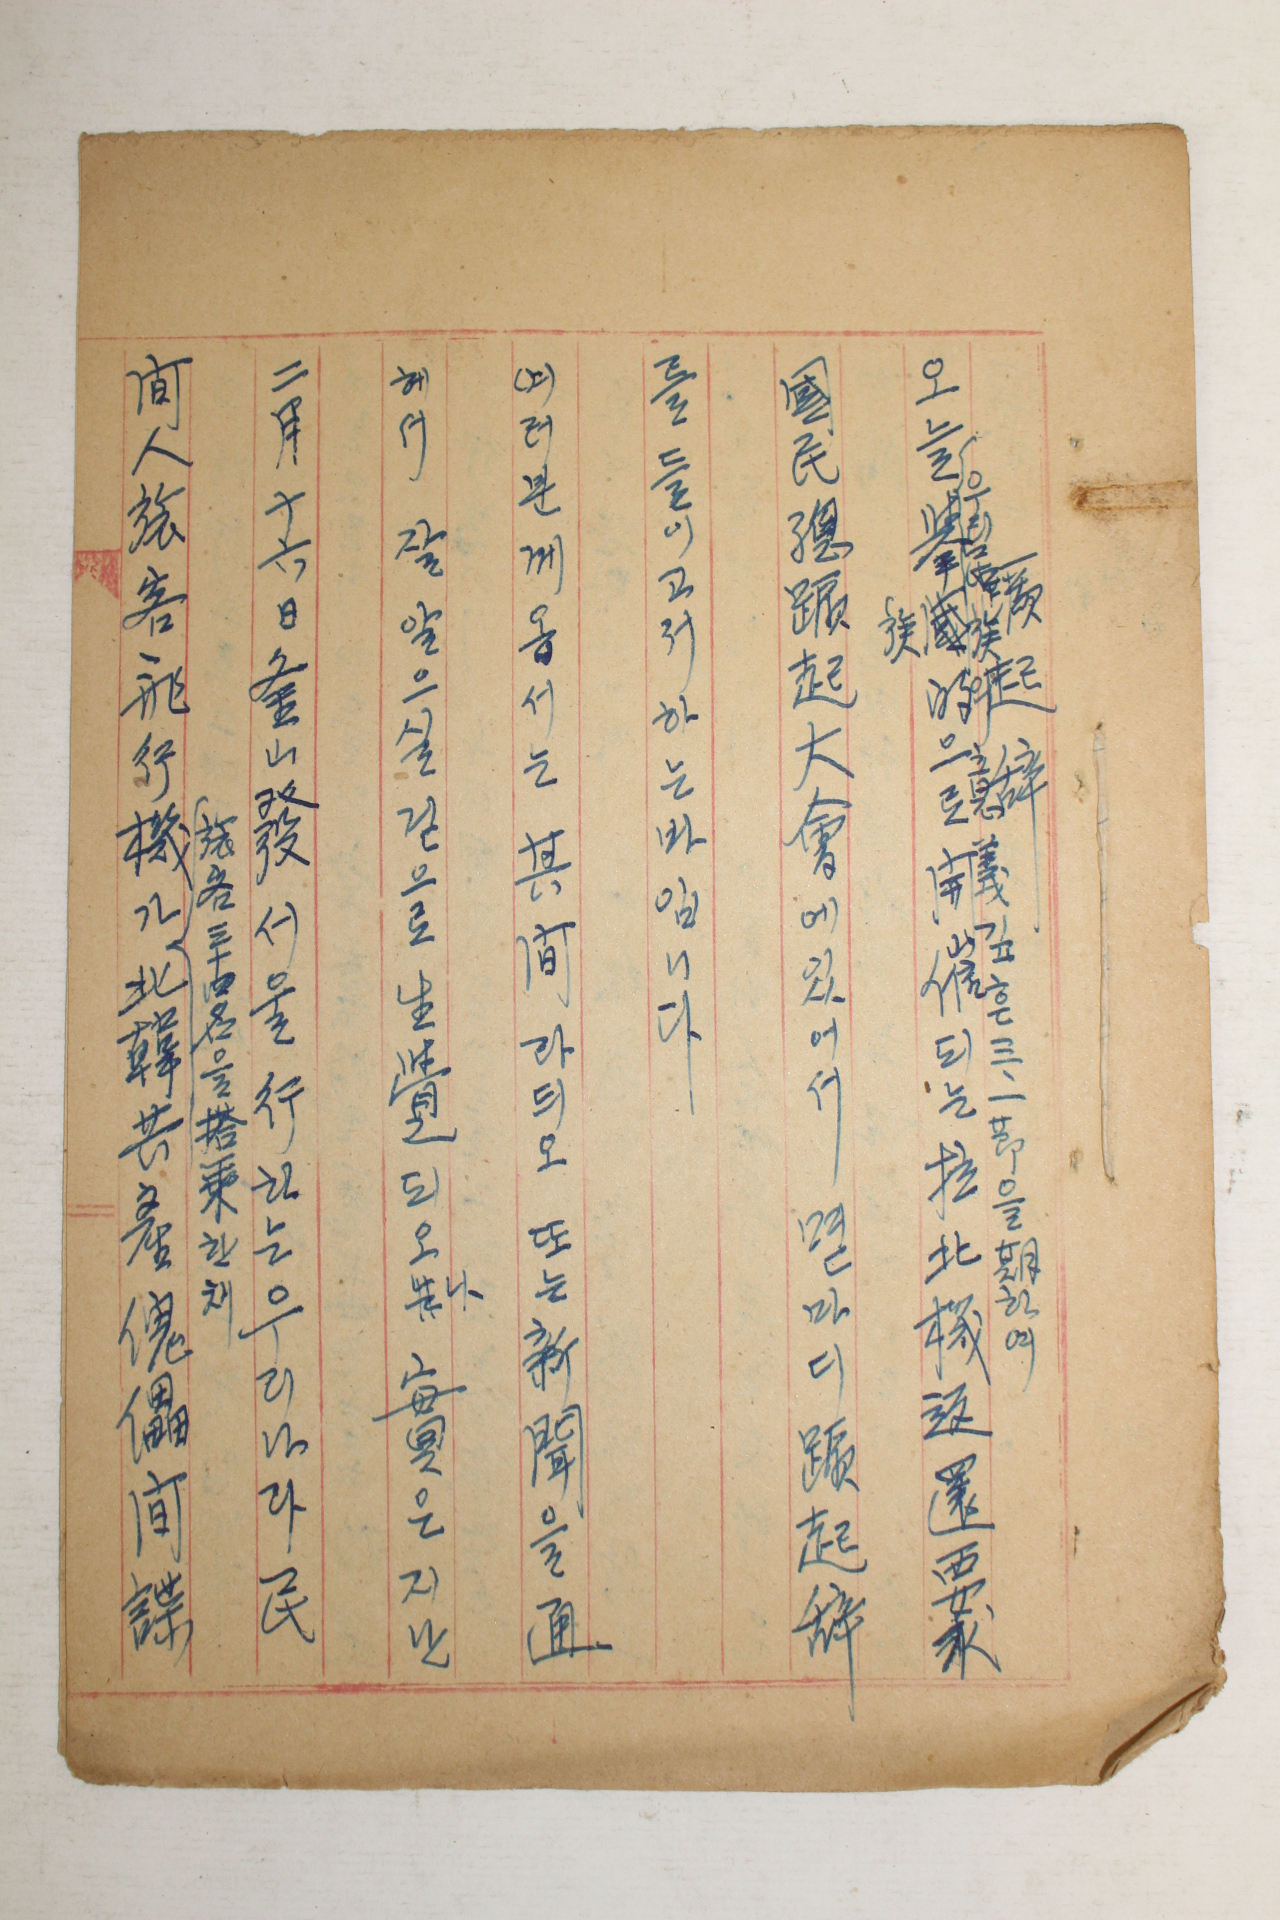 蹶起辞
우리民族 意義깊흔 三一節을 期하여
오늘 擧族的으로 開催되는 拉北機返還要求
國民總蹶起大會에 있어서 몇마디 蹶起辞
를 들이고저 하는바임니다
여러분께옵서는 其間 라듸오 또는 新聞을 通
헤서 잘 알으실 걸으로 生覺되오나 實은 지난
二月十六日 釜山發 서울行하는 우리나라 民
旅客三十四名을 搭乘한채
間人旅客飛行機가 北韓共産傀儡間諜